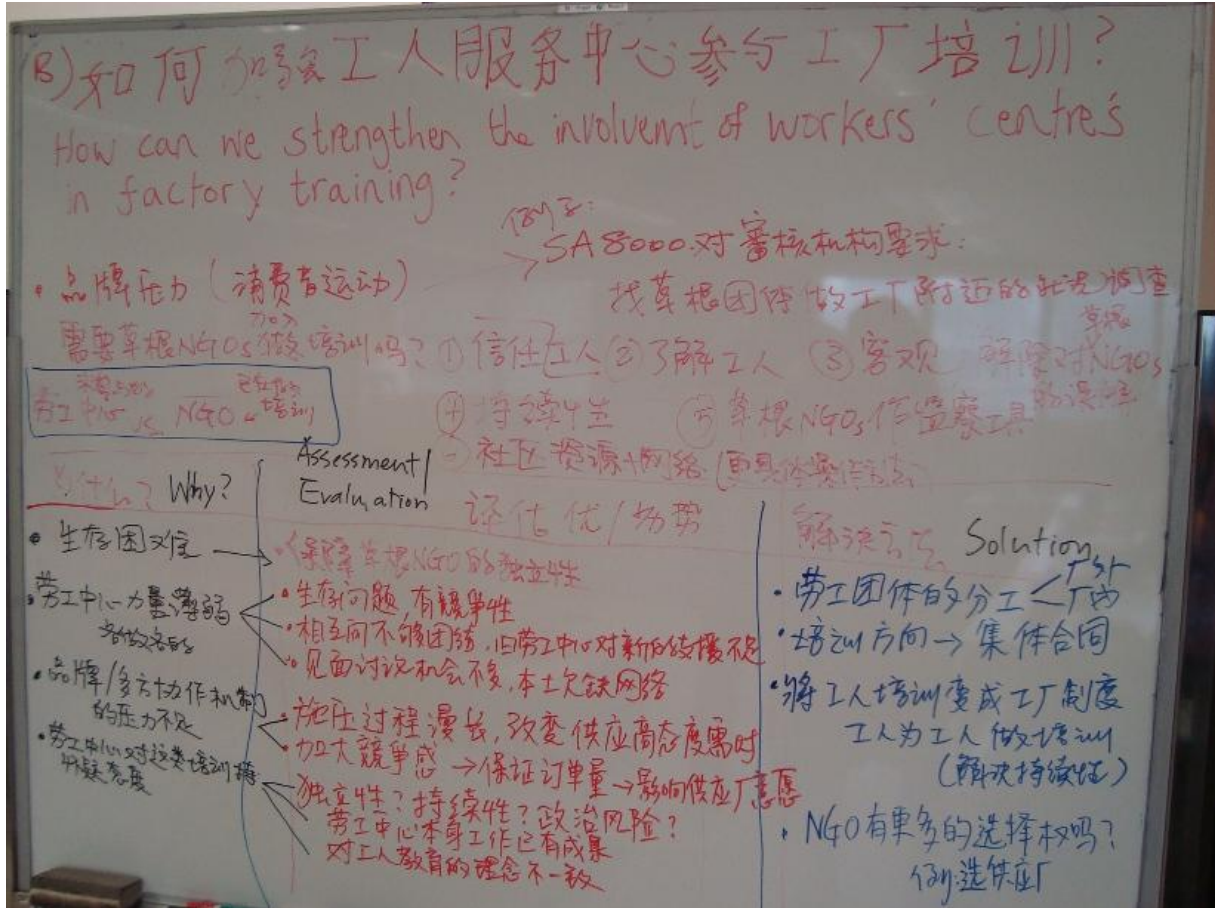 B) 如何加强工人服务中心参与工厂培训?
How can we strengthen the involvemt of workers' centre's
in factory training?
例子:
SA8000.对審核机构要求:
找草根团体做工厂附近的 调查
• 品牌压力 (消费者运动)
加入
需要草根NGOs做培训吗? ① 信任工人 ② 了解工人 ③ 客观 解除对草根NGOs
的误解
劳工中心 vs. NGO 培训
④ 持续性 ⑤ 草根NGOs作監察工具
- 社区资源+网络 (更具体操作方法)
为什么? Why?
• 生存困难
• 劳工中心力量薄弱
各做各的
• 品牌/多方协作机制
的压力不足
• 劳工中心对这类培训持
怀疑态度
Assessment/
Evaluation
评估优/劣势
• 保障草根NGO的独立性
• 生存问题,有競爭性
• 相互间不够团结,旧劳工中心对新的支援不足
• 见面讨论机会不多,本土欠缺网络
• 施压过程漫长,改变供应商态度需时
• 加大競爭感 → 保证订单量 → 影响供应厂意愿
独立性? 持续性? 政治风险?
劳工中心本身工作已有成果
对工人教育的理念不一致
解决方法 Solution
• 劳工团体的分工 < 厂外
厂内
• 培训方向 → 集体合同
• 將工人培训变成工厂制度
工人为工人做培训
(解决持续性)
• NGO有更多的选择权吗?
例:选供应厂